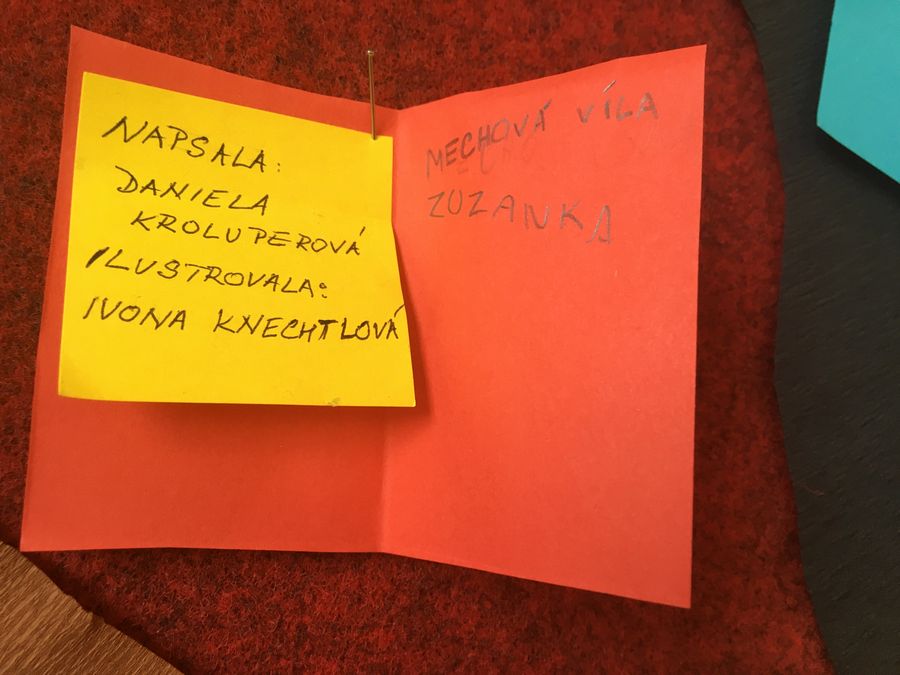 NAPSALA:
DANIELA
KROLUPEROVÁ
ILUSTROVALA:
IVONA KNECHTLOVÁ
MECHOVÁ VÍLA
ZUZANKA